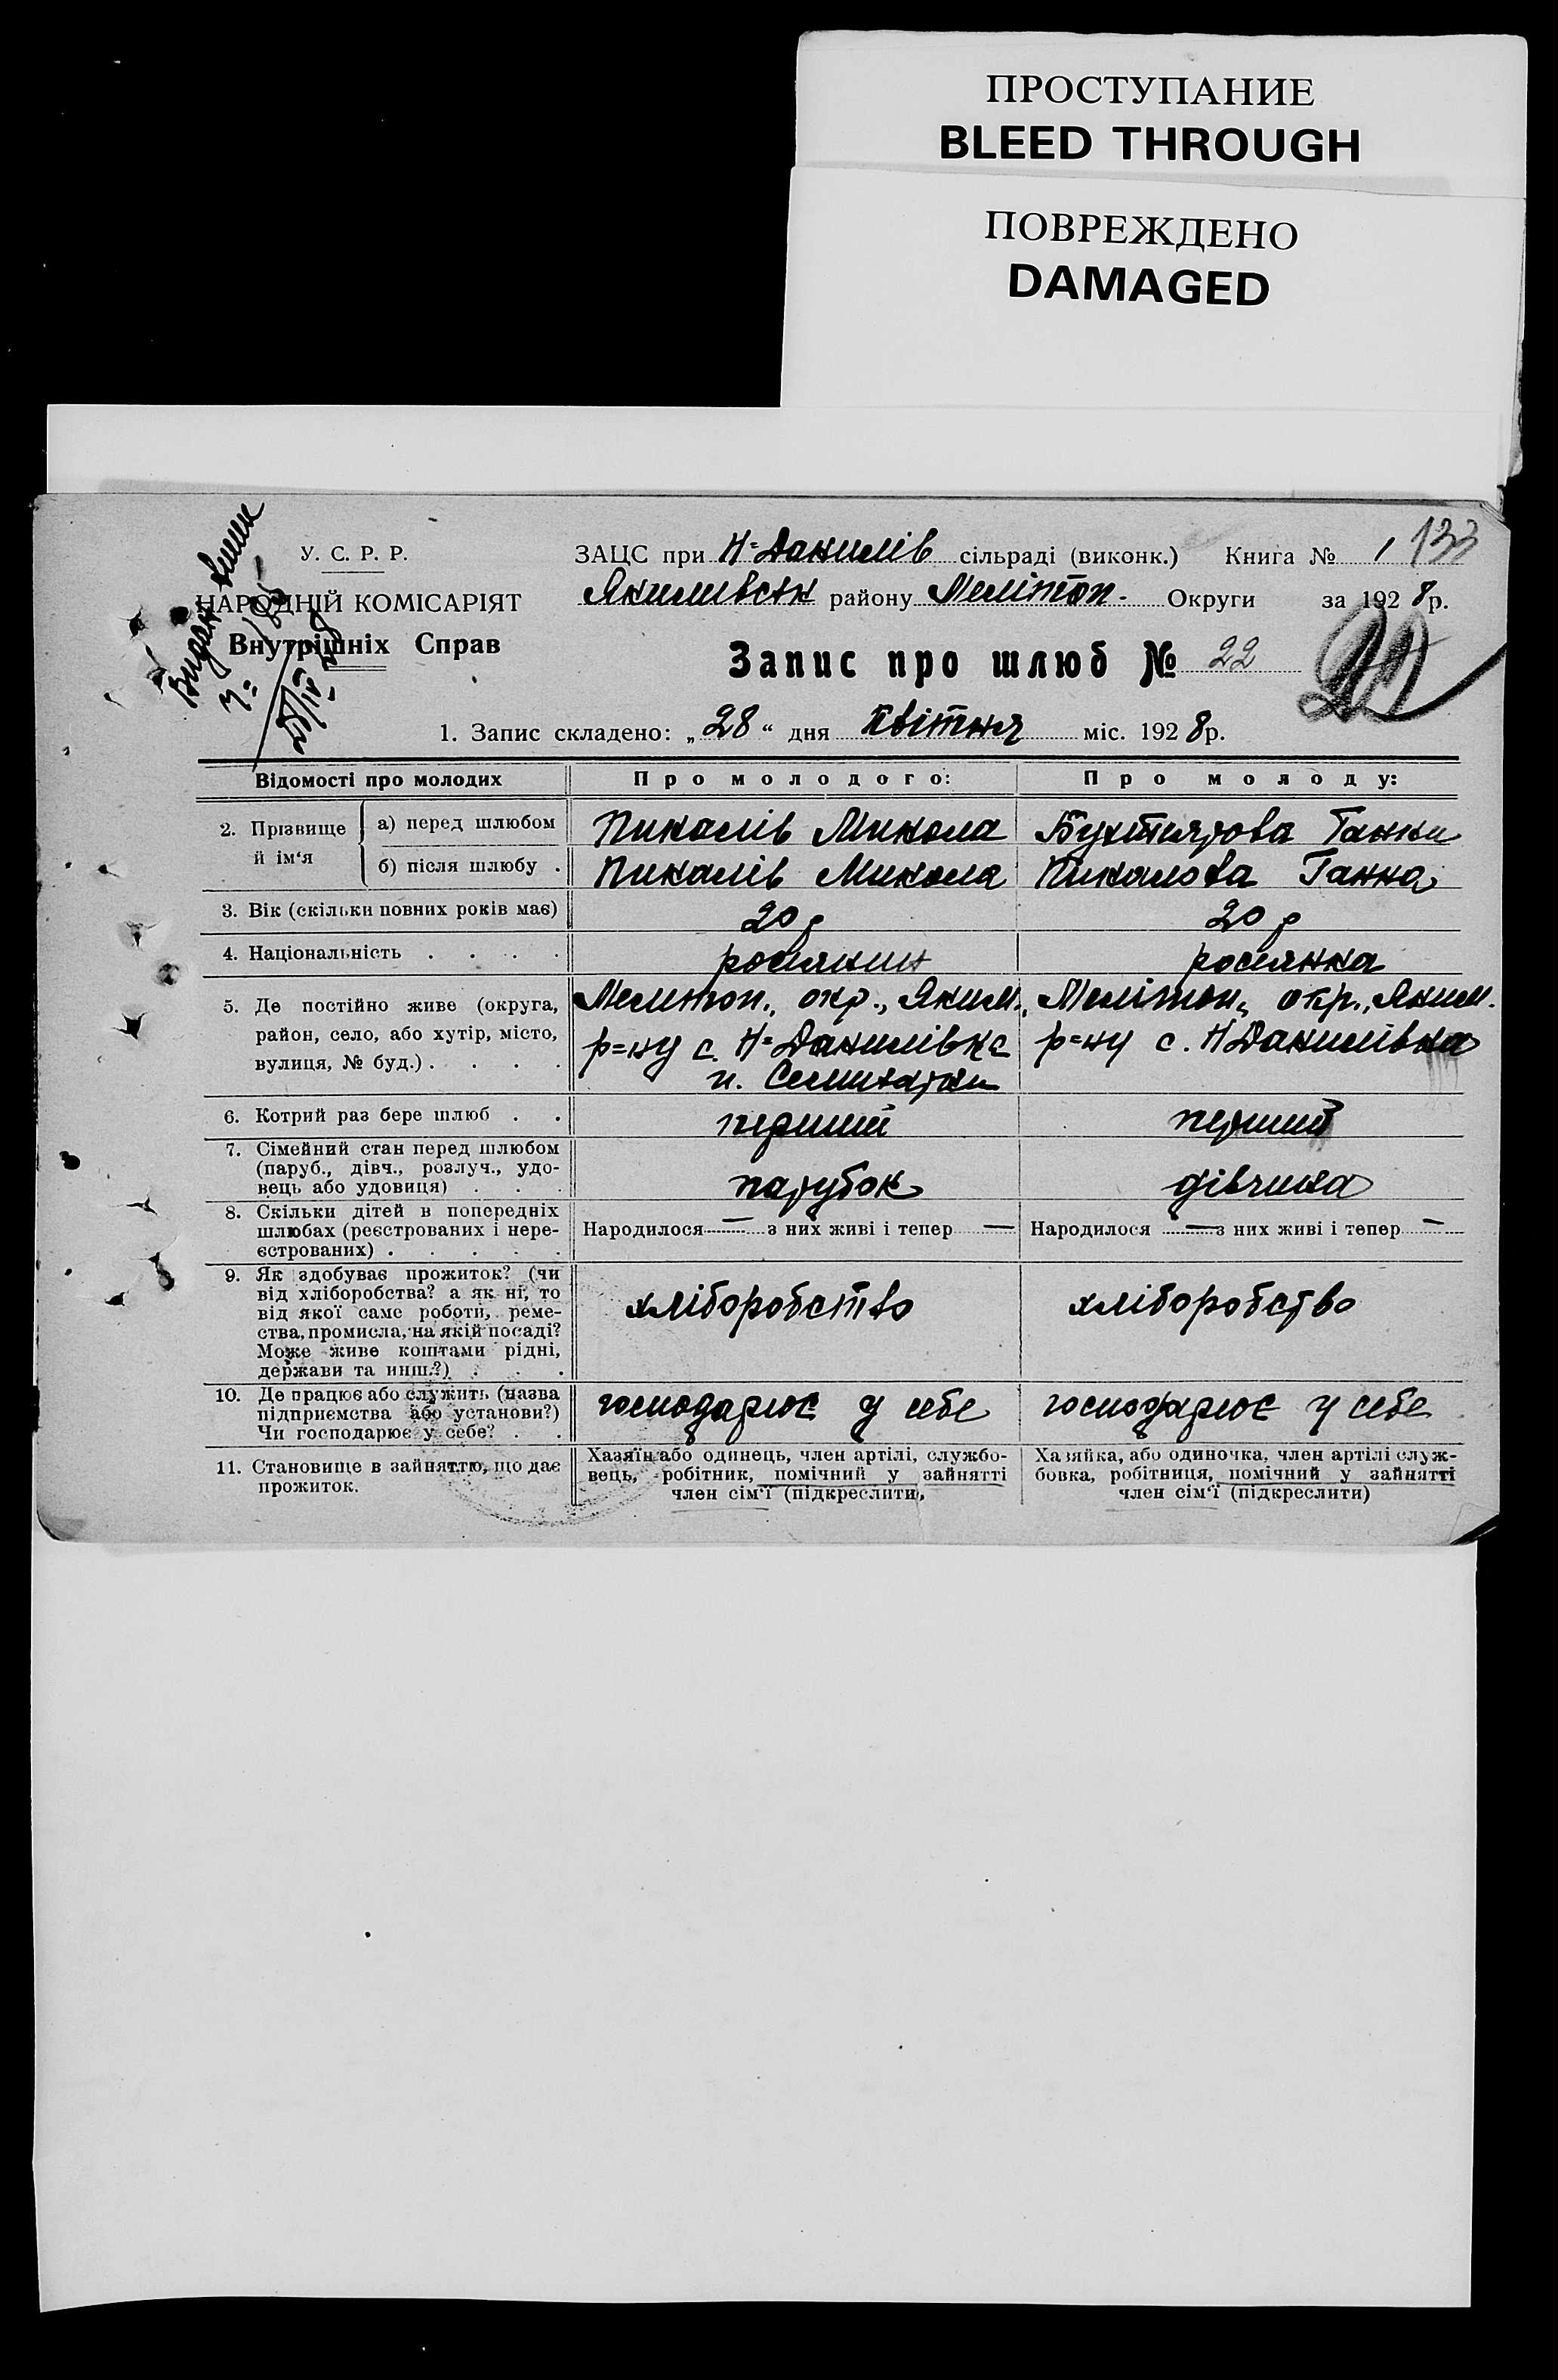 ПРОСТУПАНИЕ
BLEED THROUGH
ПОВРЕЖДЕНО
DAMAGED
У. С. Р. Р.
НАРОДНІЙ КОМІСАРІЯТ
Внутрішніх Справ
Видан
28/IV-28
ЗАЦС при Н-Данилів сільраді (виконк.) Книга № 1 133
Якимівськ району Мелітоп. Округи за 1928р.
Запис про шлюб № 22
1. Запис складено: „28“ дня Квітня міс. 1928р.
Відомості про молодих Про молодого: Про молоду:
2. Прізвище й ім‘я а) перед шлюбом Пикалів Микола Бухтиярова Ганна
б) після шлюбу . Пикалів Микола Пикалова Ганна
3. Вік (скільки повних років має) 20 р 20 р
4. Національність . . . . росіянин росіянка
5. Де постійно живе (округа, район, село, або хутір, місто, вулиця, № буд.) . . . .
Мелитоп., окр., Яким. Мелітоп., окр., Яким.
р=ну с. Н=Данилівка р=ну с. НДанилівка
п.
6. Котрий раз бере шлюб . . перший перший
7. Сімейний стан перед шлюбом
(паруб., дівч., розлуч., удо-
вець або удовиця) . . . парубок дівчина
8. Скільки дітей в попередніх
шлюбах (реєстрованих і нере-
єстрованих) . . . . .
Народилося — з них живі і тепер — Народилося — з них живі і тепер —
9. Як здобуває прожиток? (чи
від хліборобства? а як ні, то
від якої саме роботи, реме-
ства, промисла, на якій посаді?
Може живе коштами рідні,
держави та инш.?) . . .
хліборобство хліборобство
10. Де працює або служить (назва
підприємства або установи?)
Чи господарює у себе? . .
господарює у себе господарює у себе
11. Становище в зайняттю, що дає
прожиток.
Хазяїн або одинець, член артілі, службо-
вець, робітник, помічний у зайнятті
член сім‘ї (підкреслити),
Хазяйка, або одиночка, член артілі служ-
бовка, робітниця, помічний у зайнятті
член сім‘ї (підкреслити)